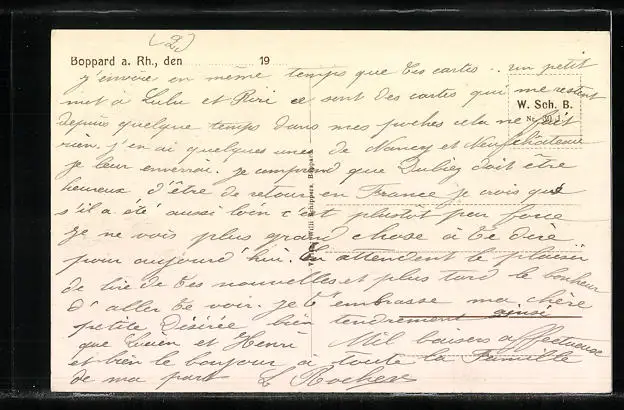 (2)
Boppard a. Rh., den 19
j'envoie en même temps que tes cartes .. un petit
mot à Lulu et Riri ce sont des cartes qui me restent
W. Sch. B.
Nr. 30
depuis quelque temps dans mes poches cela ne fait
rien. j'en ai quelques unes de Nancy et Neufchâteau
je leur enverrai. je comprend que Dubiez doit être
heureux d'être de retour en France je crois que
s'il a été aussi loin c'est plutôt par force
je ne vois plus grand chose à te dire
pour aujourd'hui. En attendant le plaisir
de lire de tes nouvelles et plus tard le bonheur
d'aller te voir. je t'embrasse ma chère
petite Désirée bien tendrement ainsi
que Lucien et Henri Mil baisers affectueux
et bien le bonjour à toute la Famille
de ma part
Willi Schippers, Boppard